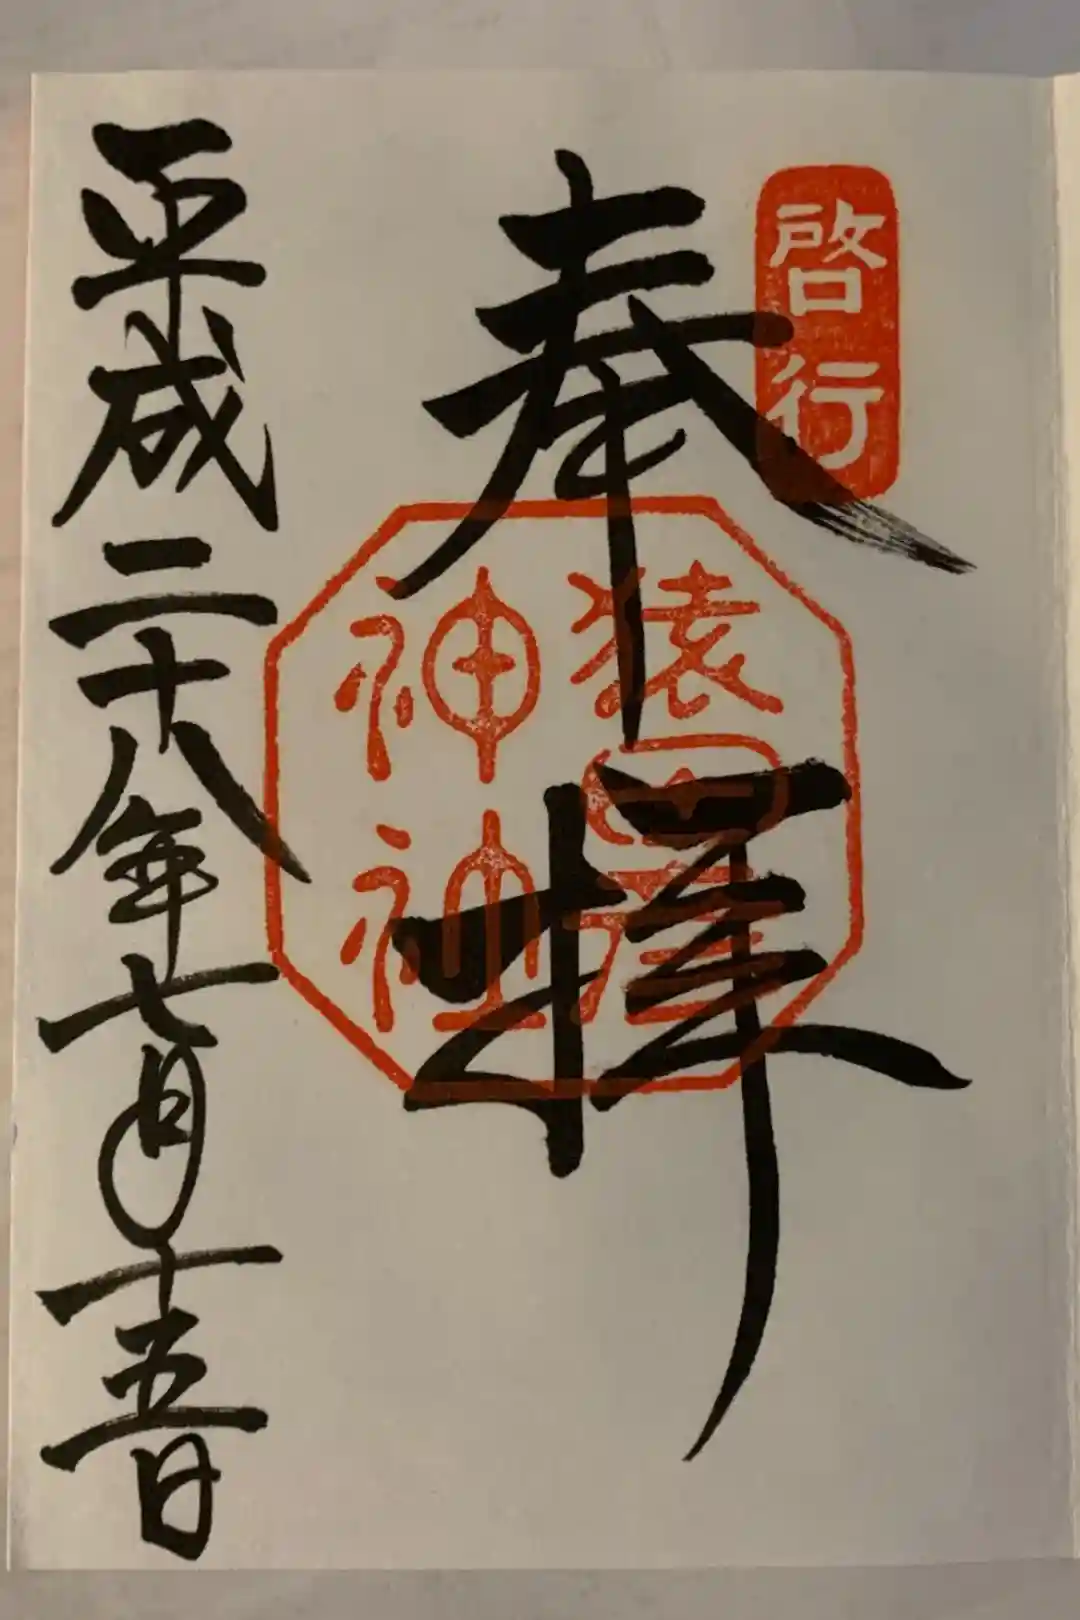 啓行
奉拝
猿田彦
神社
平成二十八年七月十五日